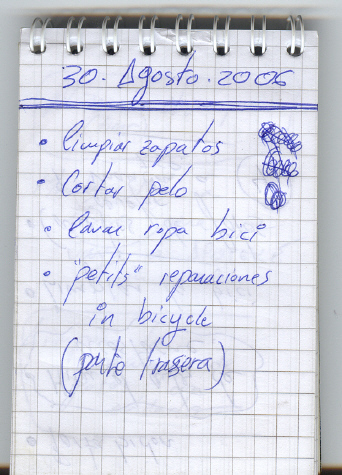 30. Agosto. 2006
• limpiar zapatos
• Cortar pelo
• lavar ropa bici
• "petits" reparaciones
in bicycle
(parte trasera)